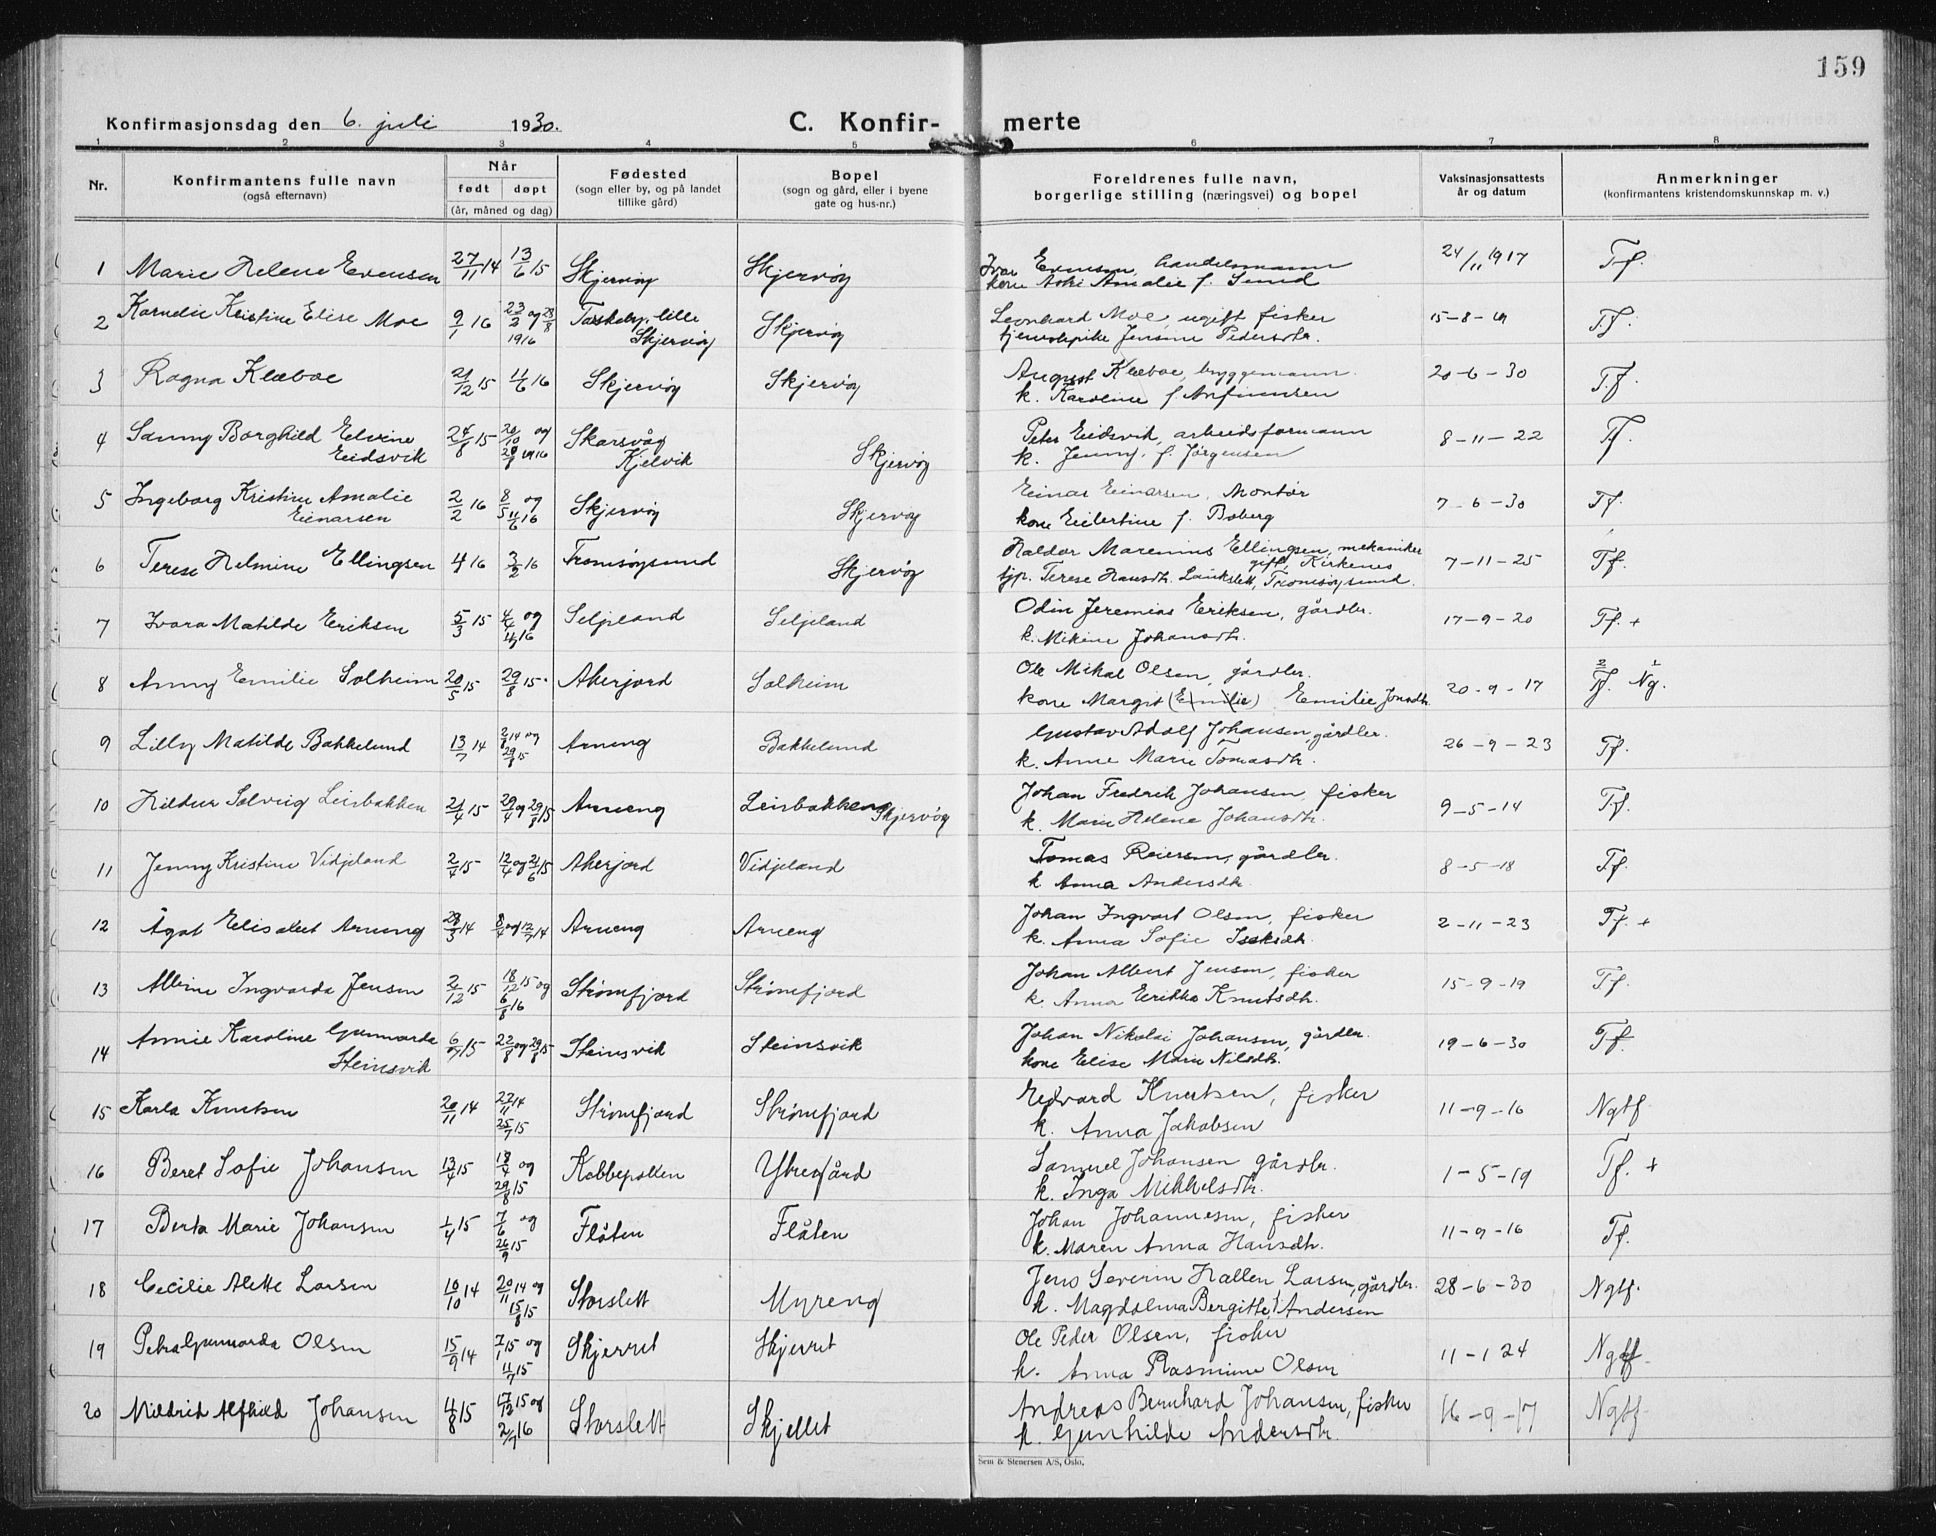 159
Konfirmasjonsdag den 6. juli 1930. C. Konfir- merte
1 2 3 4 5 6 7 8
Nr. Konfirmantens fulle navn (også efternavn) Når født døpt (år, måned og dag) Fødested (sogn eller by, og på landet tillike gård) Bopel (sogn og gård, eller i byene gate og hus-nr.) Foreldrenes fulle navn, borgerlige stilling (næringsvei) og bopel Vaksinasjonsattests år og datum Anmerkninger (konfirmantens kristendomskunnskap m. v.)
1 Marie Helene Evensen 27/11 14 13/6 15 Skjervøy Skjervøy Ivar Evensen, handelsmann 24/11 1917 Tf.
kone Amalie f. Sund
2 Kornelie Kristine Elise Moe 9/1 16 23/2 og 28/8 1916 lille Skjervøy Skjervøy Leonhard Moe, ugift fisker 15-8-19 Tf.
tjenestepike Jensine Pedersdtr.
3 Ragna Klæboe 21/12 15 11/6 16 Skjervøy Skjervøy August Klæboe, bryggemann. 20-6-30 T.f.
k. Karoline f. Arfinnsen
4 Sanny Borghild Elvine 24/8 15 20/10 og Skarsvåg Skjervøy Peter Eidsvik, arbeidsformann 8-11-22 Tf.
Eidsvik 20/8 1916 Kjelvik k. Jenny, f. Jørgensen
5 Ingeborg Kristine Amalie 2/2 16 8/5 og 11/6 16 Skjervøy Skjervøy Einar Einarsen, Montør 7-6-30 Tf.
Einarsen kone Eilertine f. Boberg
6 Terese Helmine Ellingsen 4/1 16 3/2 16 Tromsøysund Skjervøy Haldor Marenius Ellingsen, mekaniker 7-11-25 Tf.
gift, Kirkenes
tjp. Terese Hansdtr. Lankslett, Tromsøysund.
7 Ivara Matilde Eriksen 5/3 15 4/4 og 4/7 16 Seljeland Seljeland Odin Jeremias Eriksen, gårdbr. 17-9-20 Tf. +
k. Mikine Johansdtr.
8 Anny Emilie Solheim 20/5 15 29/8 15. Akerjord Solheim Ole Mikal Olsen, gårdbr. 20-9-17 2 Tf. 1 Ng.
kone Margit (Emilie) Emilie Jonsdtr.
9 Lilly Matilde Bakkelund 13/7 14 2/8 14 og 29/8 15 Arneng Bakkelund Gustav Adolf Johansen, gårdbr. 26-9-23 Tf.
k. Anne Marie Tomasdtr.
10 Hildur Solveig Leirbakken 21/4 15 29/4 og 29/8 15 Arneng Leirbakken Skjervøy Johan Fredrik Johansen, fisker 9-5-14 Tf.
k. Marie Helene Johansdtr.
11 Jenny Kristine Vidjeland 2/4 15 12/4 og 21/6 15 Akerjord Vidjeland Tomas Reiersen, gårdbr. 8-5-18 Tf.
k Anna Andersdtr.
12 Ågot Elisabet Arneng 28/3 14 8/4 og 12/7 14 Arneng Arneng Johan Ingvart Olsen, fisker 2-11-23 Tf. +
k. Anna Sofie Isaksdtr.
13 Albine Ingvarda Jensen 2/12 15 18/12 15 og 6/8 16 Strømfjord Strømfjord Johan Albert Jensen, fisker 15-9-19 Tf.
k. Anna Erikka Knutsdtr.
14 Annie Karoline Gunnarda 6/7 15 22/8 og 29/8 15 Steinsvik Steinsvik Johan Nikolai Johansen, gårdbr. 19-6-30 Tf.
Steinsvik kone Elise Marie Nilsdtr.
15 Karla Knutsen 20/11 14 27/11 14 25/7 15 Strømfjord Strømfjord Edvard Knutsen, fisker 11-9-16 Ngtf.
k. Anna Jakobsen
16 Beret Sofie Johansen 13/4 15 18/4 og 29/8 15 Kobbepollen Ytregård Samuel Johansen gårdbr. 1-5-19 Tf. +
k. Inga Mikkelsdtr.
17 Berta Marie Johansen 1/4 15 7/6 og 26/9 15 Flåten Flåten Johan Johannesen, fisker 11-9-16 Tf.
k. Maren Anna Hansdtr.
18 Cecilie Alette Larsen 10/10 14 20/11 14 og 15/8 15 Storslett Myreng Jens Severin Hallen Larsen, gårdbr. 28-6-30 Ngtf.
k. Magdalena Bergitte f. Andersen
19 Petra Gunnarda Olsen 15/9 14 7/1 15 og 11/7 15 Skjerret Skjerret Ole Peder Olsen, fisker 11-1 24 Ngtf.
k. Anna Rasmine Olsen
20 Mildrid Alfhild Johansen 4/8 15 17/12 15 og 2/7 16 Storslett Skjellet Andreas Bernhard Johansen, fisker 16-9-17 Ngtf.
k. Gunhilde Andersdtr.
Sem & Stenersen A/S, Oslo.